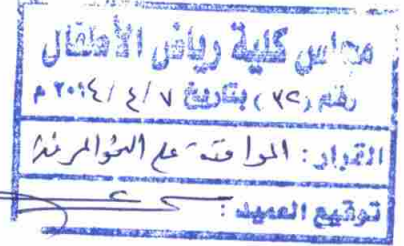 مجلس كلية رياض الأطفال
رقم (٧٢) بتاريخ ٧ / ٤ / ٢٠١٤ م
القرار : الموافقة على النحو المرفق
توقيع العميد :